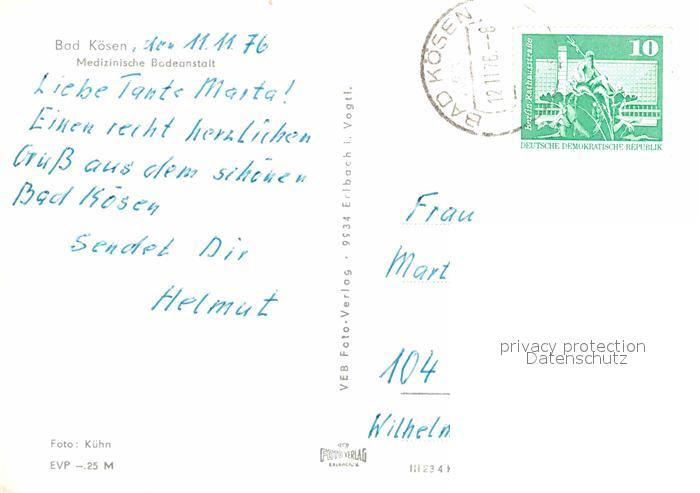 Bad Kösen, den 11.11.76
Medizinische Badeanstalt
Liebe Tante Marta!
Einen recht herzlichen
Gruß aus dem schönen
Bad Kösen
Sendet Dir
Helmut
Foto: Kühn
EVP –.25 M
VEB Foto-Verlag · 9934 Erlbach i. Vogtl.
FOTO VERLAG
BAD KÖSEN
12.11.76.-8
10
Berlin, Rathausstraße
DEUTSCHE DEMOKRATISCHE REPUBLIK
Frau
Mart
104
Wilhelm
privacy protection
Datenschutz
III 23 4